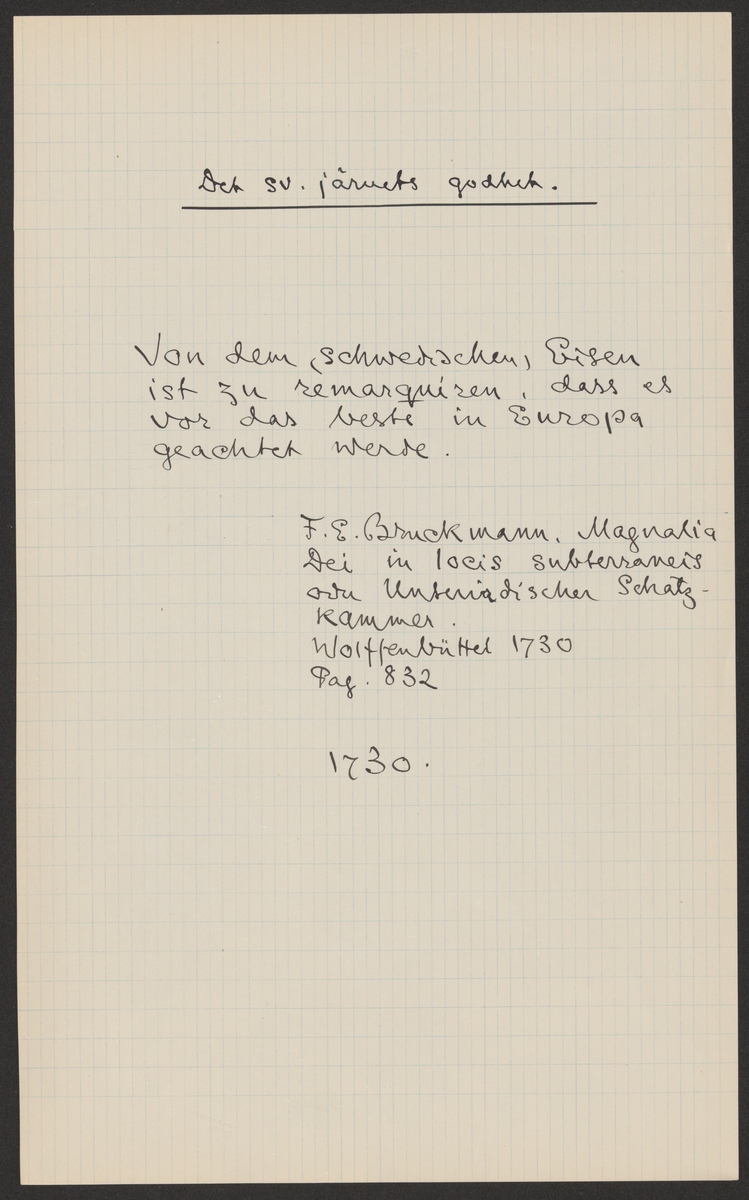 Det sv. järnets godhet.
Von dem (schwedischen) Eisen
ist zu remarquiren, dass es
vor das beste in Europa
geachtet werde.
F. E. Bruckmann, Magnalia
Dei in locis subterraneis
oder Unterirdischer Schatz-
kammer.
Wolffenbüttel 1730
Pag. 832
1730.